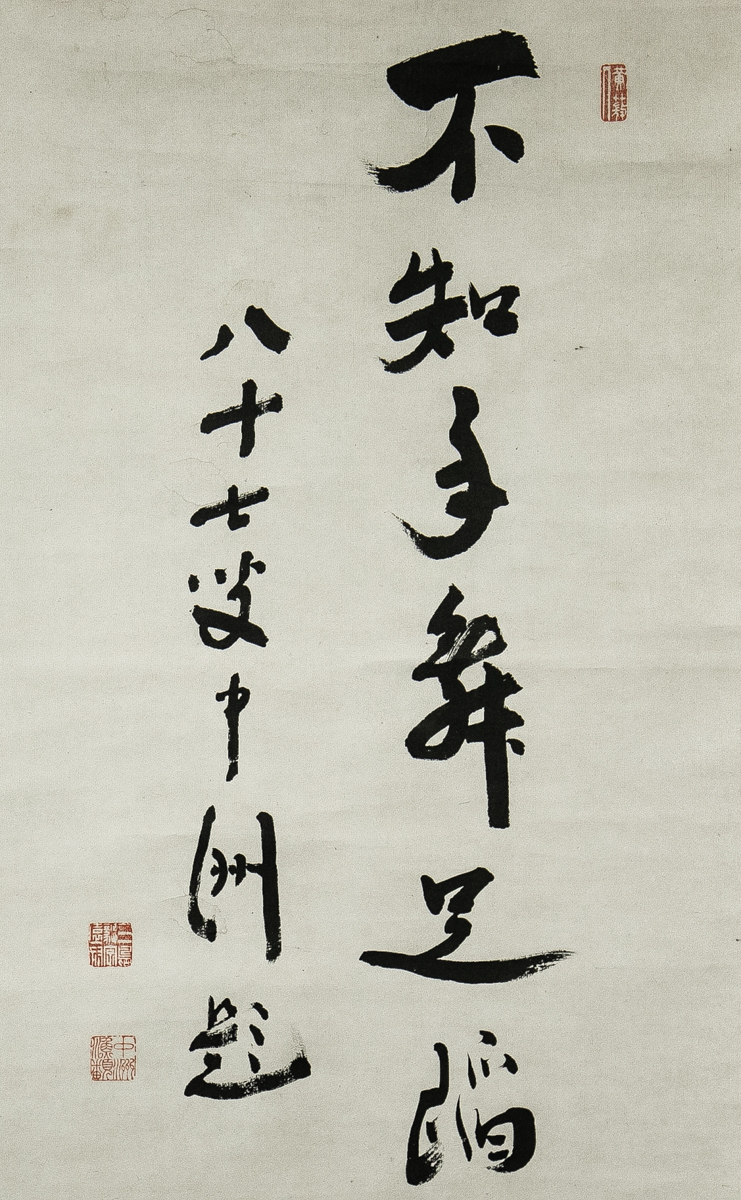 不知手舞足蹈
八十七叟中洲題